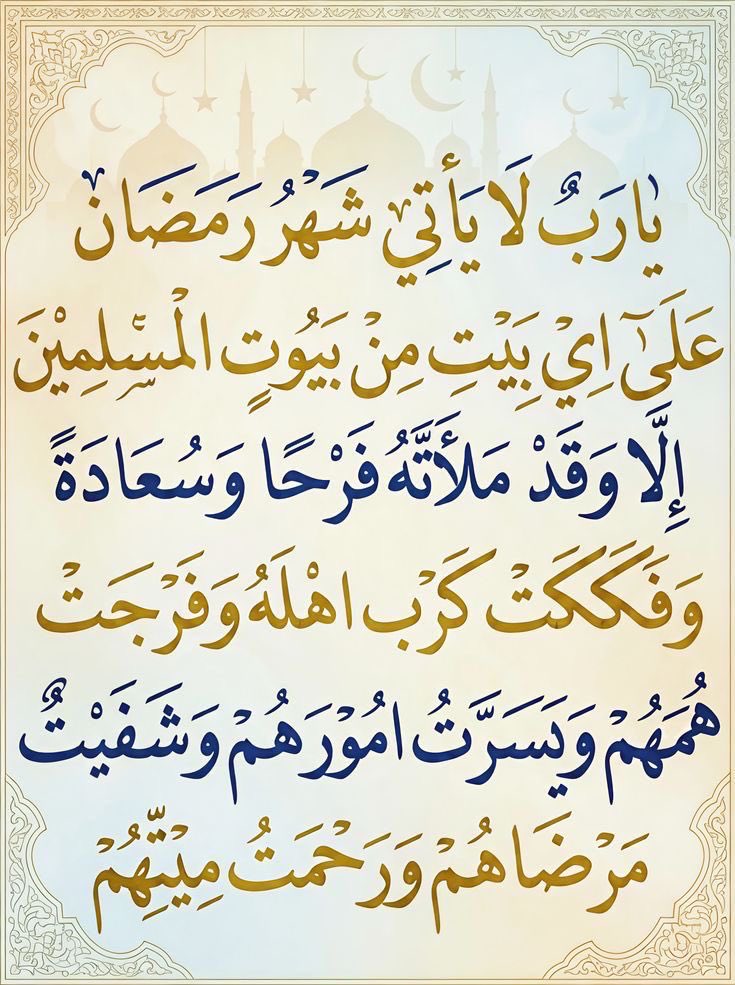 يٰارَبٌ لَا يَأتِيْ شَهْرُ رَمَضَانْ
عَلَىٰٓ اِيْ بَِيْتِ مِنْ بَيُوتٍ الْمسْلِمِيْنَ
إِلَّا وَقَدْ مَلَأَتَّهُ فَرْحًا وَسُعَادَةً
وَفَكَكَتْ كَرْب اهْلَهُ وَفَرْجَتْ
هُمَهُمْ وَيَسَرَّتُ امُوْرَهُمْ وَشَفَيْتٌ
مَرْضَاهُمْ وَرَحْمَتُ مِيْتِّهُمْ